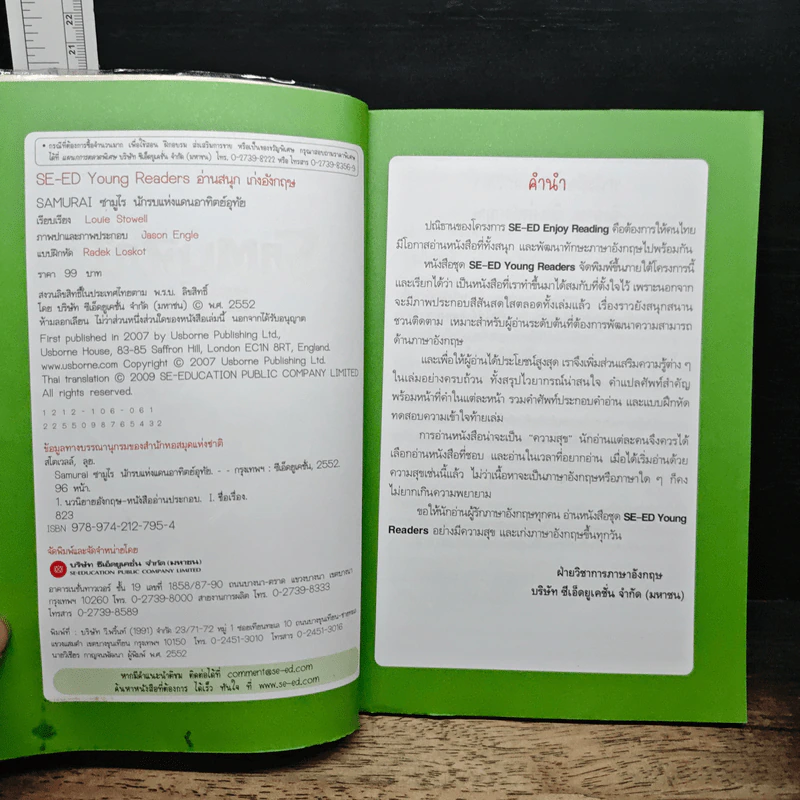 21 22
• กรณีที่ต้องการซื้อจำนวนมาก เพื่อใช้สอน ฝึกอบรม ส่งเสริมการขาย หรือเป็นของขวัญพิเศษ กรุณาสอบถามราคาพิเศษ
ได้ที่ แผนกการตลาดพิเศษ บริษัท ซีเอ็ดยูเคชั่น จำกัด (มหาชน) โทร. 0-2739-8222 หรือ โทรสาร 0-2739-8356-9
SE-ED Young Readers อ่านสนุก เก่งอังกฤษ
SAMURAI ซามูไร นักรบแห่งแดนอาทิตย์อุทัย
เรียบเรียง Louie Stowell
ภาพปกและภาพประกอบ Jason Engle
แบบฝึกหัด Radek Loskot
ราคา 99 บาท
สงวนลิขสิทธิ์ในประเทศไทยตาม พ.ร.บ. ลิขสิทธิ์
โดย บริษัท ซีเอ็ดยูเคชั่น จำกัด (มหาชน) © พ.ศ. 2552
ห้ามลอกเลียน ไม่ว่าส่วนหนึ่งส่วนใดของหนังสือเล่มนี้ นอกจากได้รับอนุญาต
First published in 2007 by Usborne Publishing Ltd.,
Usborne House, 83-85 Saffron Hill, London EC1N 8RT, England.
www.usborne.com Copyright © 2007 Usborne Publishing Ltd.
Thai translation © 2009 SE-EDUCATION PUBLIC COMPANY LIMITED
All rights reserved.
1 2 1 2 - 1 0 6 - 0 6 1
2 2 5 5 0 9 8 7 6 5 4 3 2
ข้อมูลทางบรรณานุกรมของสำนักหอสมุดแห่งชาติ
สโตเวลล์, ลุย.
Samurai ซามูไร นักรบแห่งแดนอาทิตย์อุทัย. - - กรุงเทพฯ : ซีเอ็ดยูเคชั่น, 2552.
96 หน้า.
1. นวนิยายอังกฤษ-หนังสืออ่านประกอบ. I. ชื่อเรื่อง.
823
ISBN 978-974-212-795-4
จัดพิมพ์และจัดจำหน่ายโดย
บริษัท ซีเอ็ดยูเคชั่น จำกัด (มหาชน)
SE-EDUCATION PUBLIC COMPANY LIMITED
อาคารเนชั่นทาวเวอร์ ชั้น 19 เลขที่ 1858/87-90 ถนนบางนา-ตราด แขวงบางนา เขตบางนา
กรุงเทพฯ 10260 โทร. 0-2739-8000 สายงานการผลิต โทร. 0-2739-8333
โทรสาร 0-2739-8589
พิมพ์ที่ : บริษัท วี.พริ้นท์ (1991) จำกัด 23/71-72 หมู่ 1 ซอยเทียนทะเล 10 ถนนบางขุนเทียน-ชายทะเล
แขวงแสมดำ เขตบางขุนเทียน กรุงเทพฯ 10150 โทร. 0-2451-3010 โทรสาร 0-2451-3016
นายวิเชียร กาญจนพัฒนา ผู้พิมพ์ พ.ศ. 2552
หากมีคำแนะนำติชม ติดต่อได้ที่ comment@se-ed.com
ค้นหาหนังสือที่ต้องการ ได้เร็ว ทันใจ ที่ www.se-ed.com
คำนำ
ปณิธานของโครงการ SE-ED Enjoy Reading คือต้องการให้คนไทย
มีโอกาสอ่านหนังสือที่ทั้งสนุก และพัฒนาทักษะภาษาอังกฤษไปพร้อมกัน
หนังสือชุด SE-ED Young Readers จัดพิมพ์ขึ้นภายใต้โครงการนี้
และเรียกได้ว่า เป็นหนังสือที่เราทำขึ้นมาได้สมกับที่ตั้งใจไว้ เพราะนอกจาก
จะมีภาพประกอบสีสันสดใสตลอดทั้งเล่มแล้ว เรื่องราวยังสนุกสนาน
ชวนติดตาม เหมาะสำหรับผู้อ่านระดับต้นที่ต้องการพัฒนาความสามารถ
ด้านภาษาอังกฤษ
และเพื่อให้ผู้อ่านได้ประโยชน์สูงสุด เราจึงเพิ่มส่วนเสริมความรู้ต่าง ๆ
ในเล่มอย่างครบถ้วน ทั้งสรุปไวยากรณ์น่าสนใจ คำแปลศัพท์สำคัญ
พร้อมหน้าที่คำในแต่ละหน้า รวมคำศัพท์ประกอบคำอ่าน และแบบฝึกหัด
ทดสอบความเข้าใจท้ายเล่ม
การอ่านหนังสือน่าจะเป็น "ความสุข" นักอ่านแต่ละคนจึงควรได้
เลือกอ่านหนังสือที่ชอบ และอ่านในเวลาที่อยากอ่าน เมื่อได้เริ่มอ่านด้วย
ความสุขเช่นนี้แล้ว ไม่ว่าเนื้อหาจะเป็นภาษาอังกฤษหรือภาษาใด ๆ ก็คง
ไม่ยากเกินความพยายาม
ขอให้นักอ่านผู้รักภาษาอังกฤษทุกคน อ่านหนังสือชุด SE-ED Young
Readers อย่างมีความสุข และเก่งภาษาอังกฤษขึ้นทุกวัน
ฝ่ายวิชาการภาษาอังกฤษ
บริษัท ซีเอ็ดยูเคชั่น จำกัด (มหาชน)